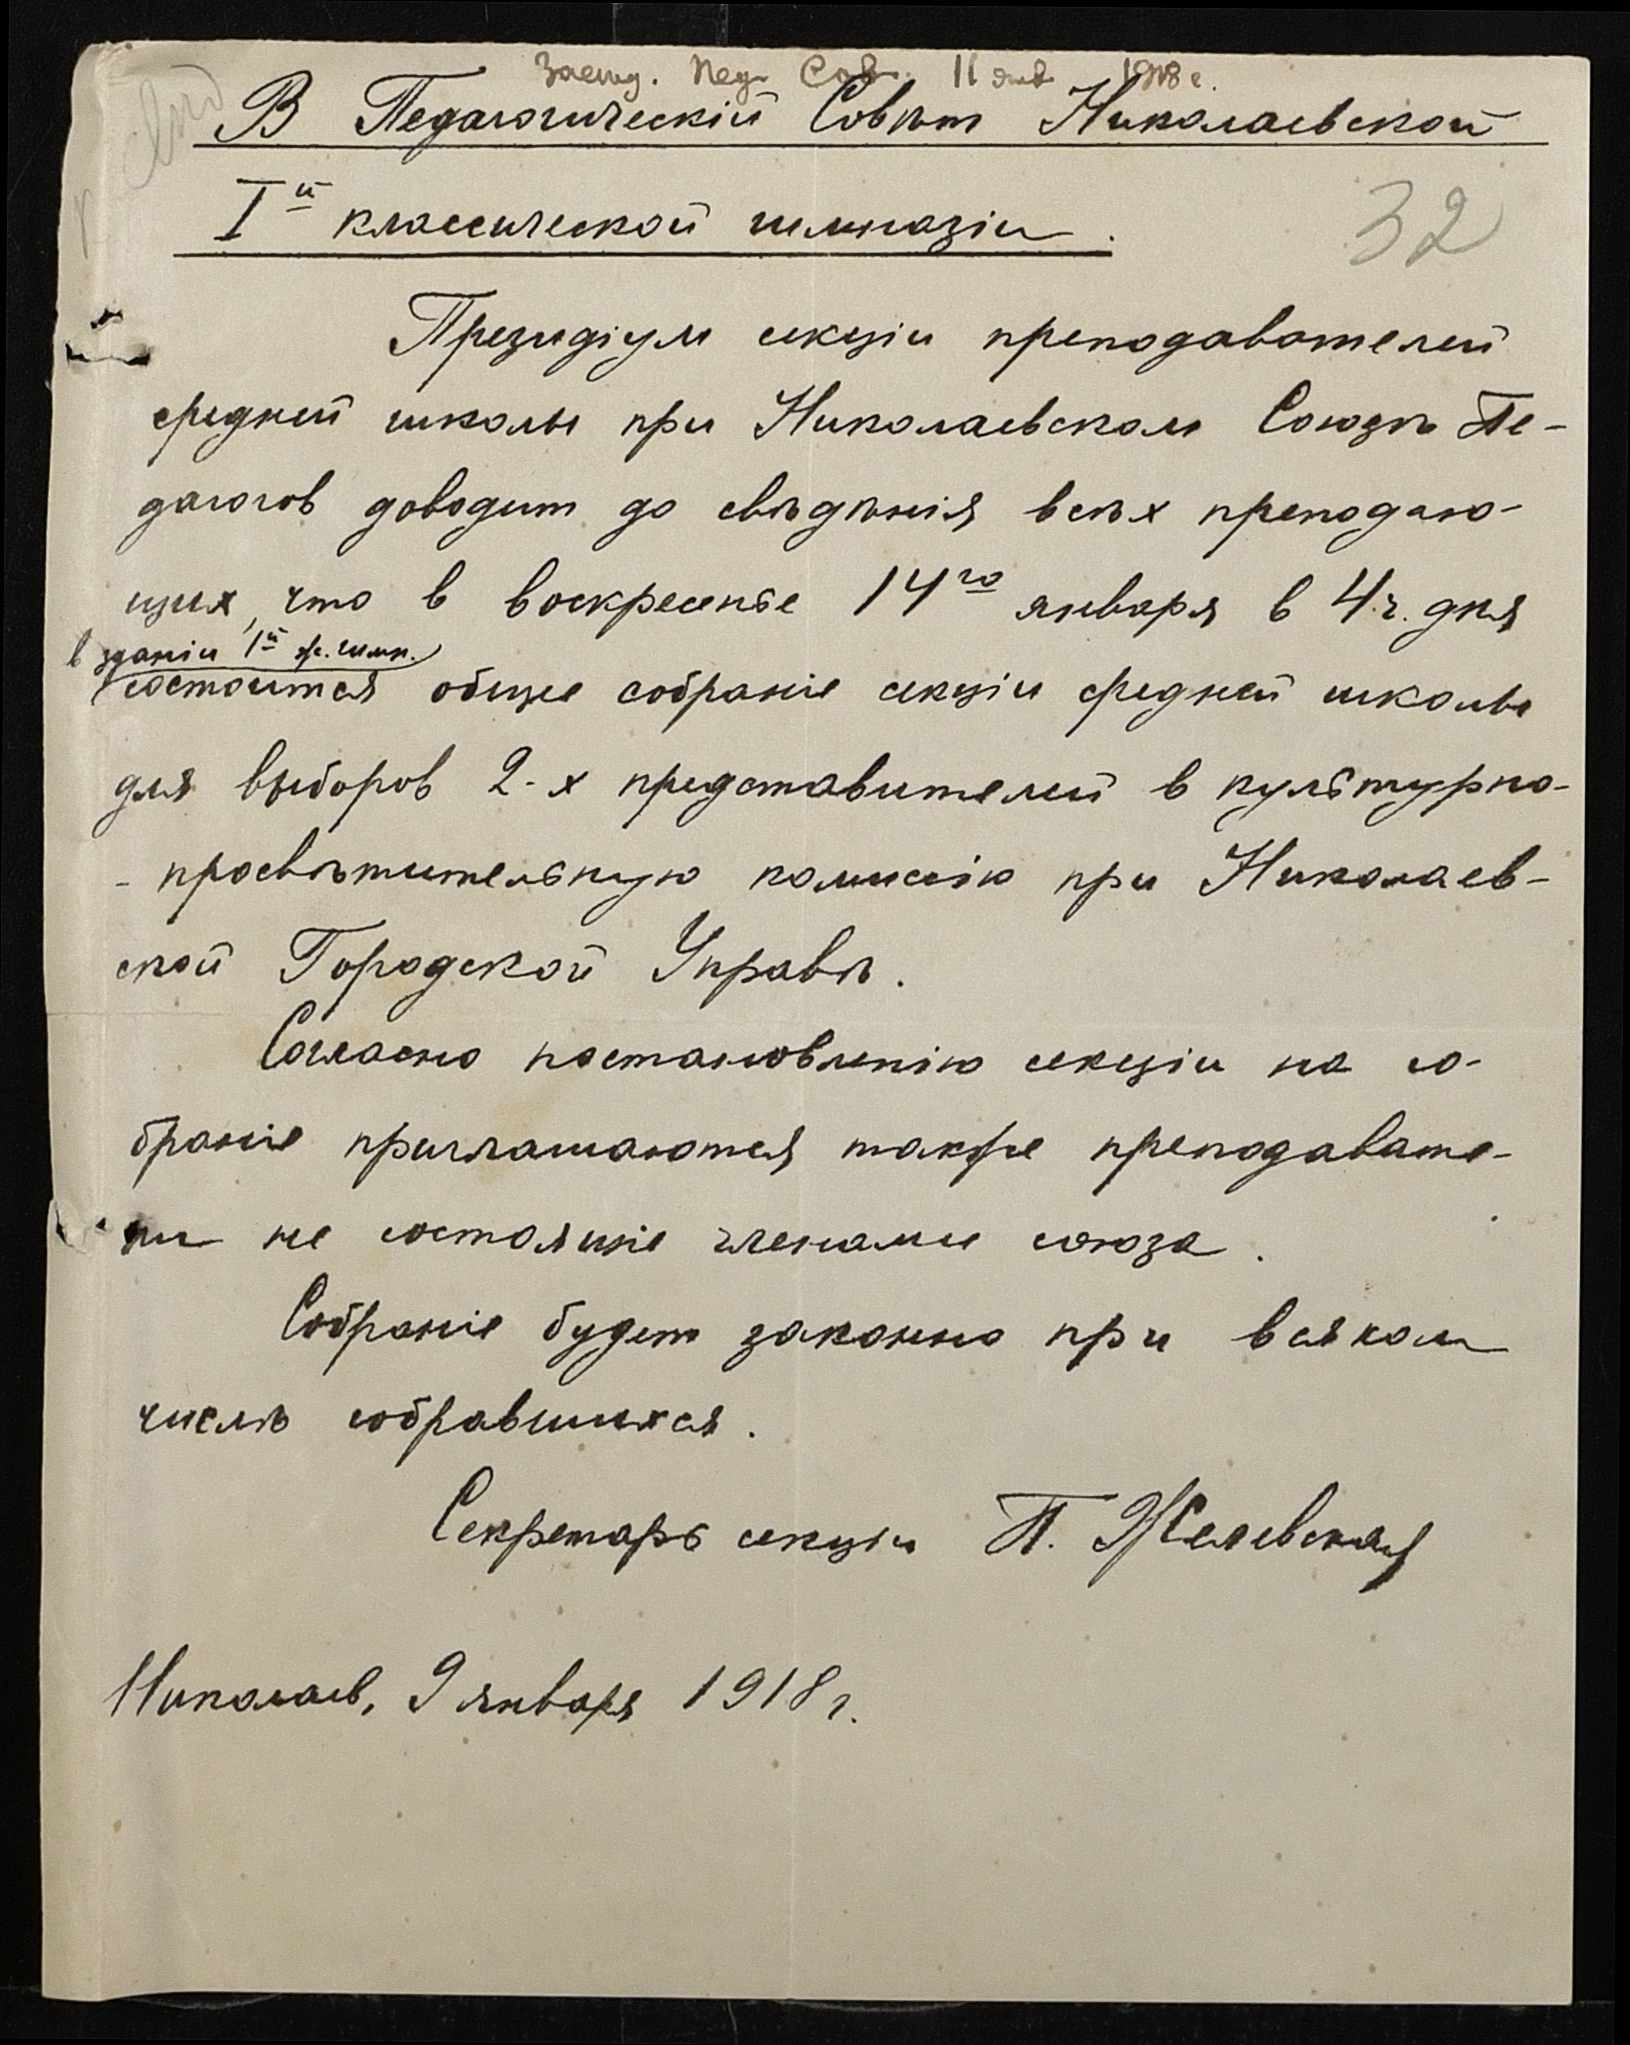 Засед. Пед. Сов. 11 янв. 1918 г.
В Педагогическій Совѣт Николаевской
Iй классической гимназіи.
32
Президіум секціи преподавателей
средней школы при Николаевском Союзѣ Пе-
дагогов доводит до свѣдѣнія всѣх преподаю-
щих, что в воскресенье 14го января в 4 ч. дня
в зданіи 1й ж. гимн.
состоится общее собраніе секціи средней школы
для выборов 2-х представителей в культурно-
-просвѣтительную комиссію при Николаев-
ской Городской Управѣ.
Согласно постановленію секціи на со-
браніе приглашаются также преподавате-
ли не состоящіе членами союза.
Собраніе будет законно при всяком
числѣ собравшихся.
Секретарь секціи П. Желевская
Николаев, 9 января 1918 г.